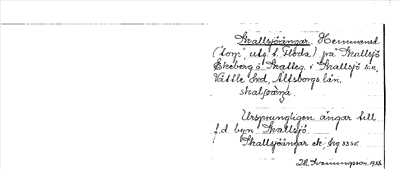 Skallsjöängar. Hemmansd
("torp", utg. t. Floda) på Skallsjö
Ekeberg o. Skatteg. i Skallsjö sn,
Vättle hd, Älfsborgs län.
skalʃöäŋa.
Ursprungligen ängar till
f.d. byn Skallsjö.
Skallsjöängar ek.
Th. Svenungsson 1933